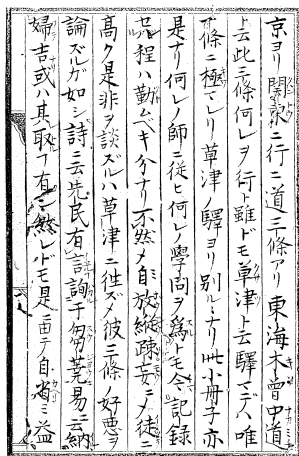 京ヨリ關東ニ行ニ道三條アリ東海木曾中道
ト云此三條何レヲ行ト雖ドモ草津ト云驛マデハ唯
一條ニ極マレリ草津ノ驛ヨリ別ルヽナリ此小冊子亦
是ナリ何レノ師ニ從ヒ何レノ學問ヲ爲トモ今記録
スル程ハ勤ムベキ分ナリ不然〆自放縱疎妄ニ〆徒ニ
高ク是非ヲ談ズルハ草津ニ徃ズ〆彼三條ノ好悪ヲ
論ズルガ如シ詩ニ云先民有言詢于芻蕘易ニ云納
婦吉或ハ其取ヿ有ン然レドモ是ニ由テ自省ミ益